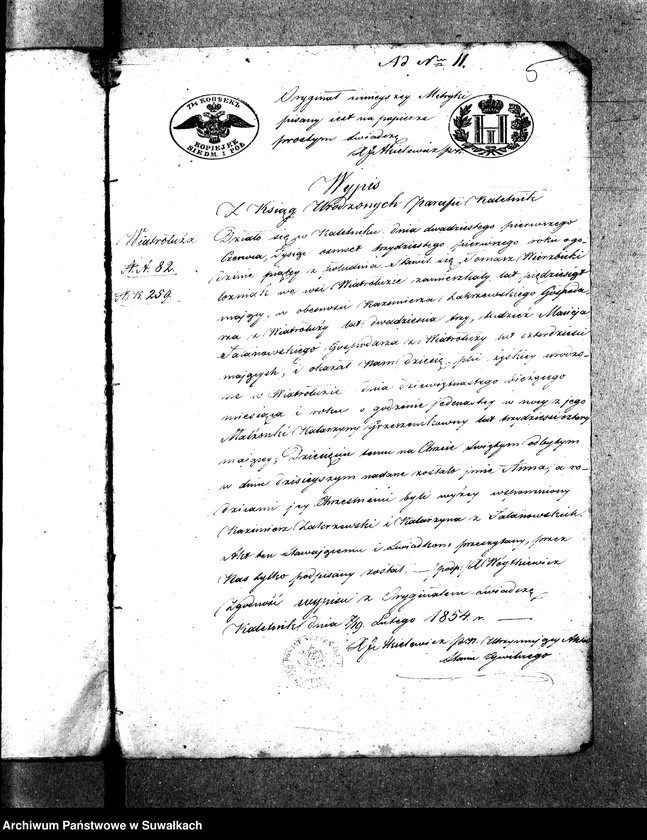 Ad Nr 11.
5
7½ КОПѢЕКЪ
KOPIEJEK
SIEDM I PÓŁ
Oryginał ninieyszey Metryki
pisany iest na papierze
prostym świadczę
Wypis
Z Ksiąg Urodzonych Parafii Kaletnik
Wiatrołuża
N. A. 82.
N. K. 259.
Działo się w Kaletniku dnia dwudziestego pierwszego
Czerwca, Tysiąc osmset trzydziestego pierwszego roku o go-
dzinie piątey z południa. Stawił się Tomasz Wierzbicki
we wsi Wiatrołuzie zamieszkały lat pięćdziesiąt
maiący, w obecności Kazimierza Zakrzewskiego Gospoda-
rza z Wiatrołuży lat dwadzieścia trzy, tudzież Macieja
Gospodarza z Wiatrołuży lat czterdzieści
maiących, i okazał nam dziecię płci żyńskiey urodzo-
ne w Wiatrołuzie dnia dziewiętnastego bieżącego
miesiąca i roku o godzinie jedenastey w nocy z jego
Małżonki Katarzyny lat trzydzieści cztery
maiącey; Dziecięciu temu na Chrzcie Świętym odbytym
w dniu dzisieyszym nadane zostało imie Anna, a ro-
dzicami jey Chrzestnemi byli wyżey wspomniony
Kazimierz Zakrzewski i Katarzyna z
Akt ten Stawaiącemu i Świadkom przeczytany, przez
Nas tylko podpisany został. — /podp./ X Woytkiewicz
Zgodność wypisu z Oryginałem świadczę
Kaletnik dnia 7/19 Lutego 1854. r. —
utrzymujący Akta
Stanu Cywilnego
Archiwum Państwowe w Suwałkach